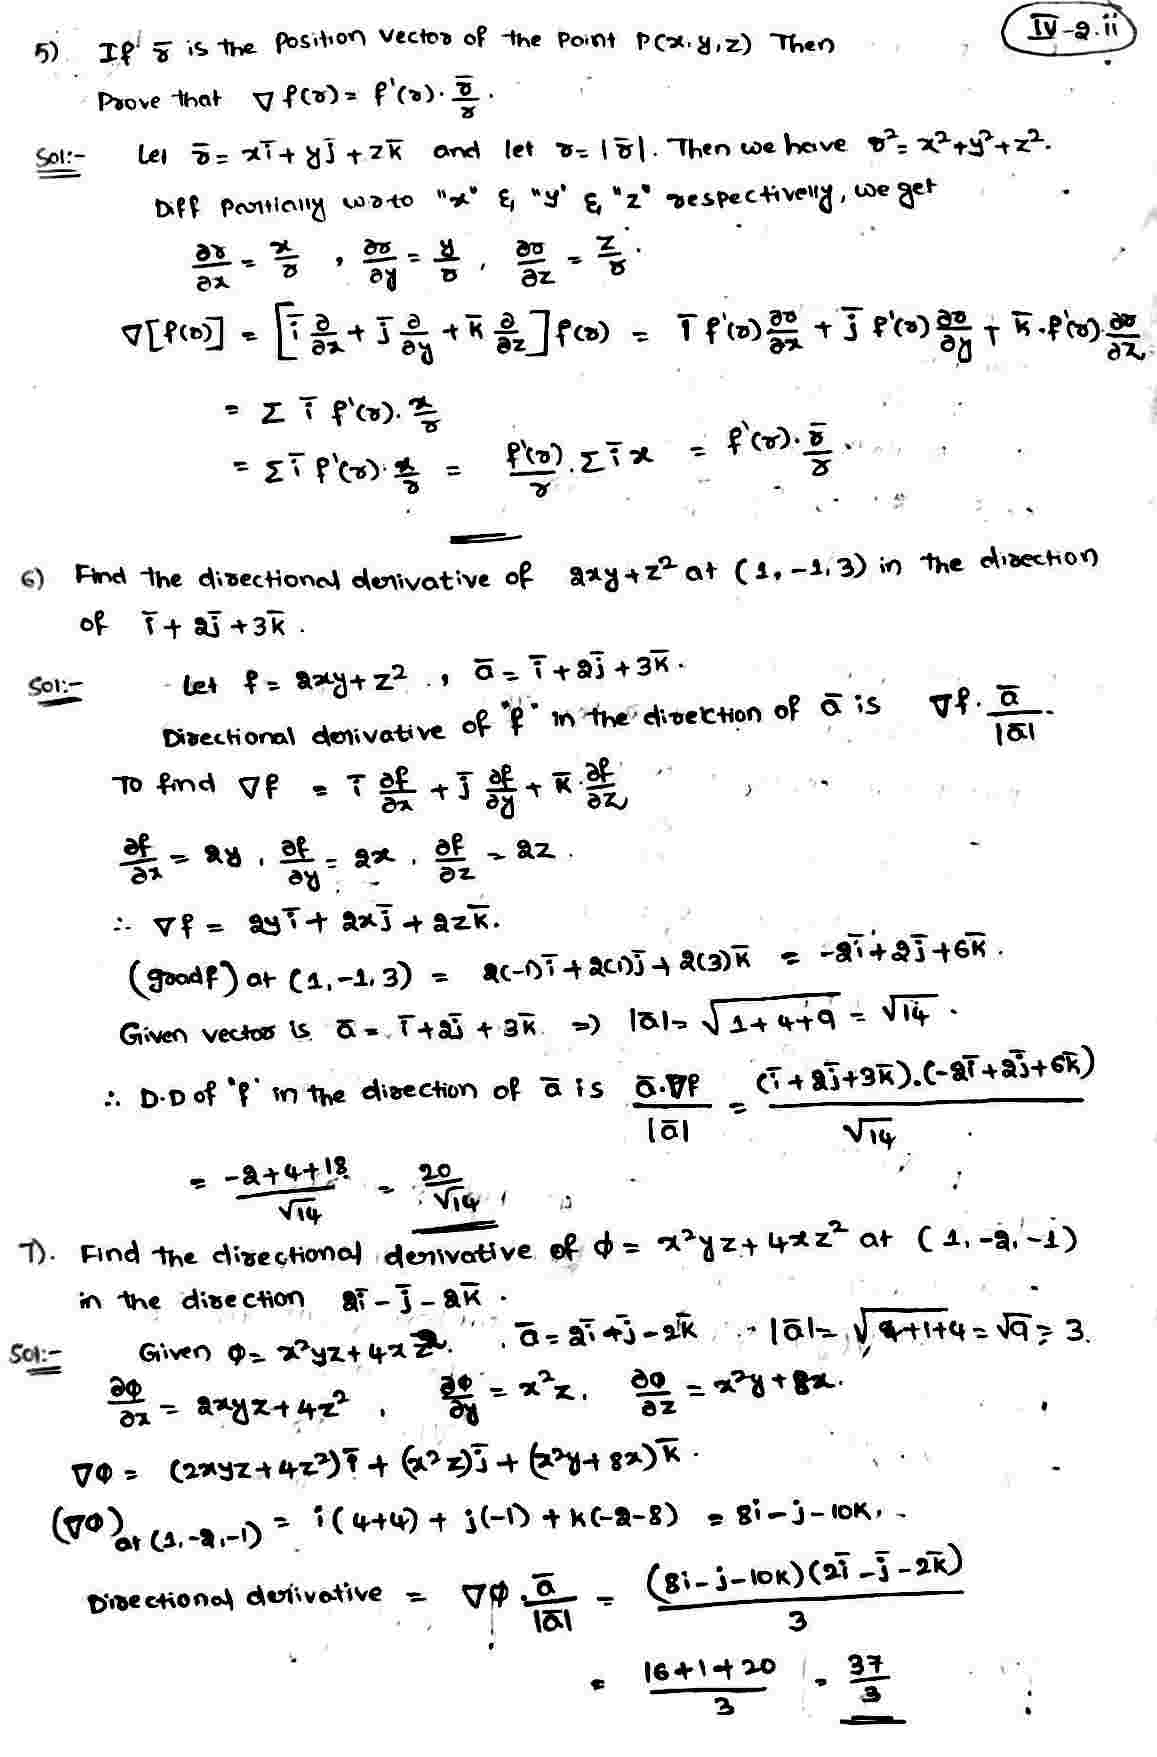 IV-2.ii
5) If r̄ is the Position vector of the Point P(x,y,z) Then
Prove that ∇ f(r) = f'(r) · r̄/r .
Sol:- Let r̄ = xī + yj̄ + zk̄ and let r = |r̄|. Then we have r² = x²+y²+z².
Diff Partially w.r.to "x" & "y" & "z" respectively, we get
∂r/∂x = x/r , ∂r/∂y = y/r , ∂r/∂z = z/r .
∇[f(r)] = [ī ∂/∂x + j̄ ∂/∂y + k̄ ∂/∂z] f(r) = ī f'(r) ∂r/∂x + j̄ f'(r) ∂r/∂y + k̄ · f'(r) · ∂r/∂z
= Σ ī f'(r) · x/r
= Σ ī f'(r) · x/r = f'(r)/r · Σ ī x = f'(r) · r̄/r .
6) Find the directional derivative of 2xy+z² at (1,-1,3) in the direction
of ī + 2j̄ + 3k̄ .
Sol:- Let f = 2xy+z² , ā = ī + 2j̄ + 3k̄ .
Directional derivative of "f" in the direction of ā is ∇f · ā/|ā| .
To find ∇f = ī ∂f/∂x + j̄ ∂f/∂y + k̄ · ∂f/∂z
∂f/∂x = 2y , ∂f/∂y = 2x , ∂f/∂z = 2z .
∴ ∇f = 2yī + 2xj̄ + 2zk̄ .
(gradf) at (1,-1,3) = 2(-1)ī + 2(1)j̄ + 2(3)k̄ = -2ī + 2j̄ + 6k̄ .
Given vector is ā = ī + 2j̄ + 3k̄ ⇒ |ā| = √(1+4+9) = √14 .
∴ D.D of 'f' in the direction of ā is ā·∇f/|ā| = (ī + 2j̄ + 3k̄).(-2ī + 2j̄ + 6k̄)/√14
= (-2+4+18)/√14 = 20/√14
7). Find the directional derivative of ϕ = x²yz + 4xz² at (1,-2,-1)
in the direction 2ī - j̄ - 2k̄ .
Sol:- Given ϕ = x²yz + 4xz² . ā = 2ī + j̄ - 2k̄ |ā| = √(4+1+4) = √9 = 3.
∂ϕ/∂x = 2xyz + 4z² , ∂ϕ/∂y = x²z , ∂ϕ/∂z = x²y + 8x .
∇ϕ = (2xyz + 4z²)ī + (x²z)j̄ + (x²y + 8x)k̄ .
(∇ϕ) at (1,-2,-1) = i(4+4) + j(-1) + k(-2-8) = 8i - j - 10k .
Directional derivative = ∇ϕ · ā/|ā| = (8i - j - 10k)(2ī - j̄ - 2k̄)/3
= (16+1+20)/3 = 37/3